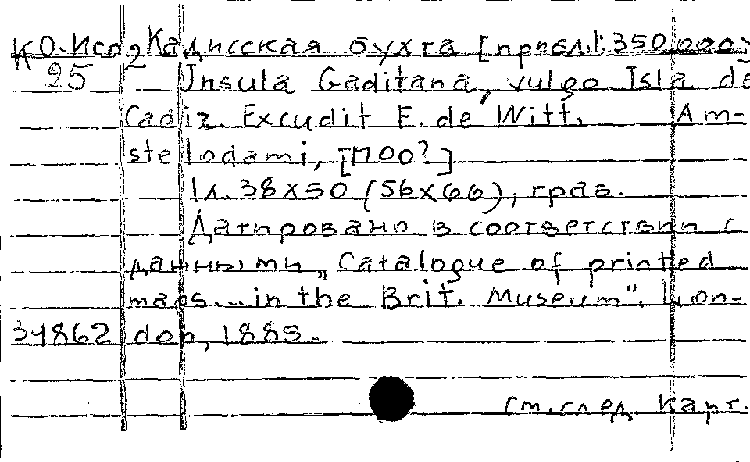 КО. Исп Кадисская бухта [прибл. 1:350.000]
25 Insula Gaditana, vulgo Isla de
Cadiz. Excudit F. de Witt. Am-
stelodami, [1700?]
1 л. 38x50 (56x66), грав.
Датировано в соответствии с
данными „Catalogue of printed
maps... in the Brit. Museum". Lon-
34862 don, 1885.
См. след. карт.